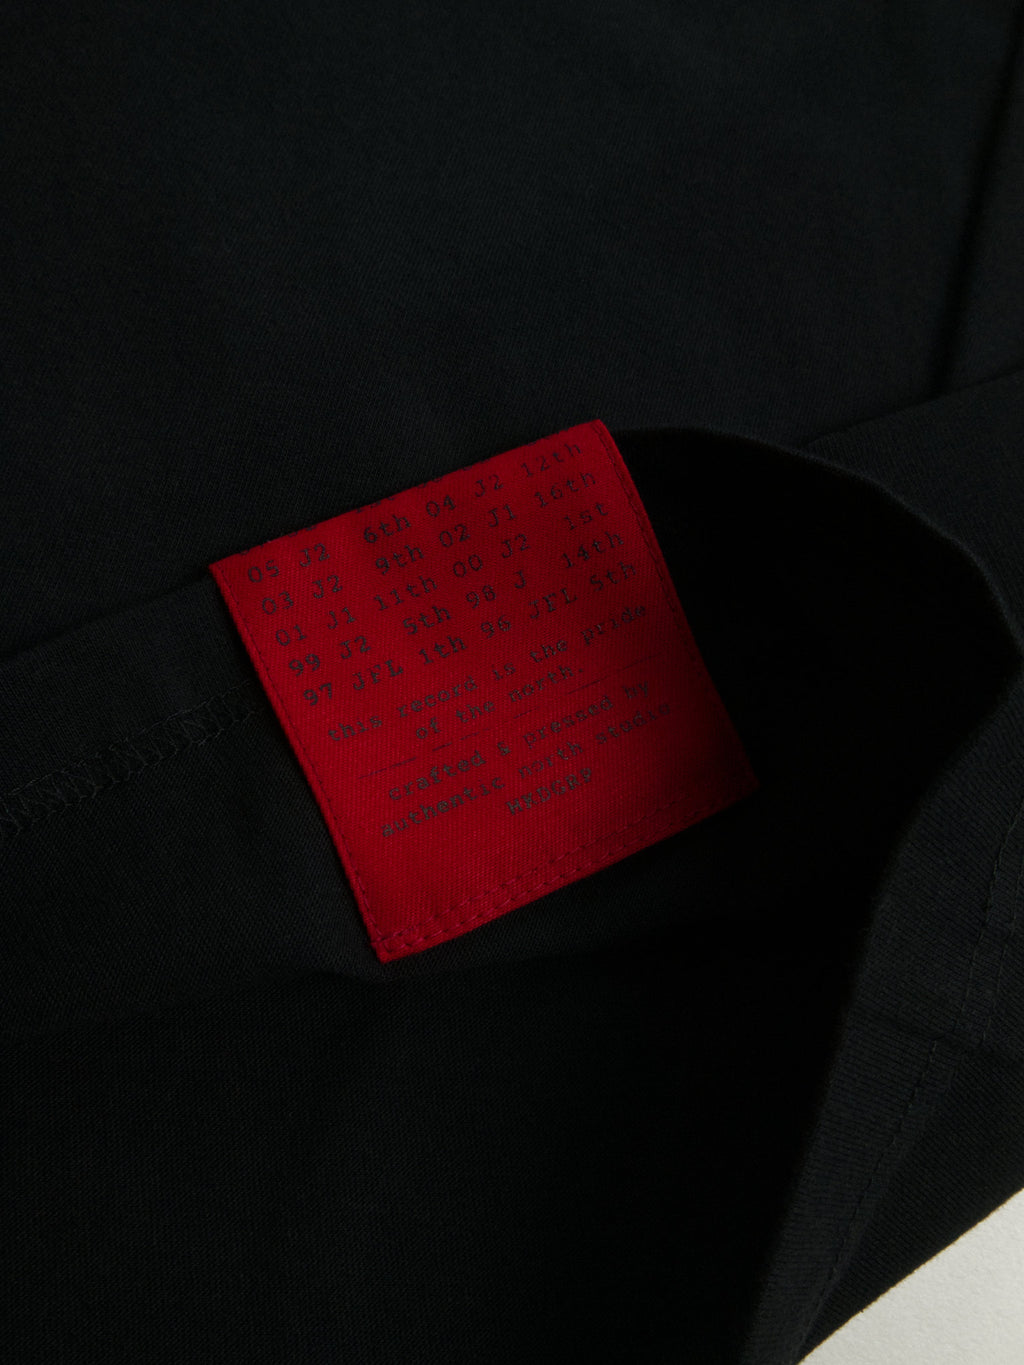 05 J2 6th 04 J2 12th
03 J2 9th 02 J1 16th
01 J1 11th 00 J2 1st
99 J2 5th 98 J 14th
97 JFL 1th 96 JFL 5th
this record is the pride
of the north.
crafted & pressed by
authentic north studio